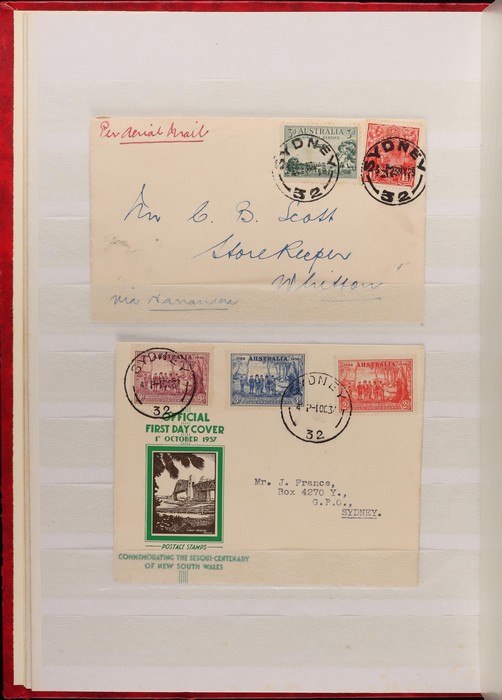 Per Aerial Mail
3d AUSTRALIA 3d
SYDNEY
32
SYDNEY
32
Mr C. B. Scott
Storekeeper
Whitton
via Nanawon
AUSTRALIA
SYDNEY
4 P - 1 OC 37
32
AUSTRALIA
AUSTRALIA
SYDNEY
4 P - 1 OC 37
32
OFFICIAL
FIRST DAY COVER
1st OCTOBER 1937
Mr. J. France,
Box 4270 Y.,
G.P.O.,
SYDNEY.
POSTAGE STAMPS
COMMEMORATING THE SESQUI-CENTENARY
OF NEW SOUTH WALES